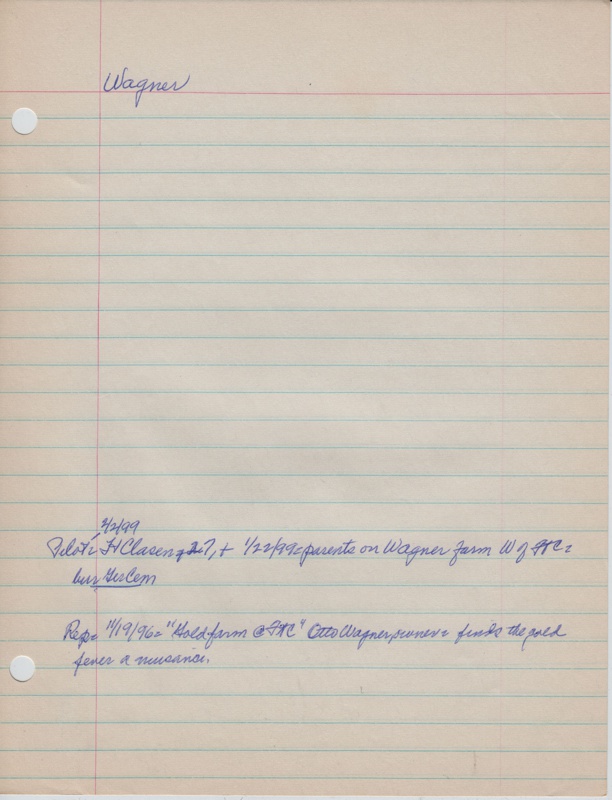 Wagner
2/2/99
Pilot= H Clasen, 27, + 1/22/99= parents on Wagner farm W of FtC=
bur Ger Cem
Rep= 11/19/96= "Gold farm @ FtC" Otto Wagner, owner= finds the gold
fever a nuisance.